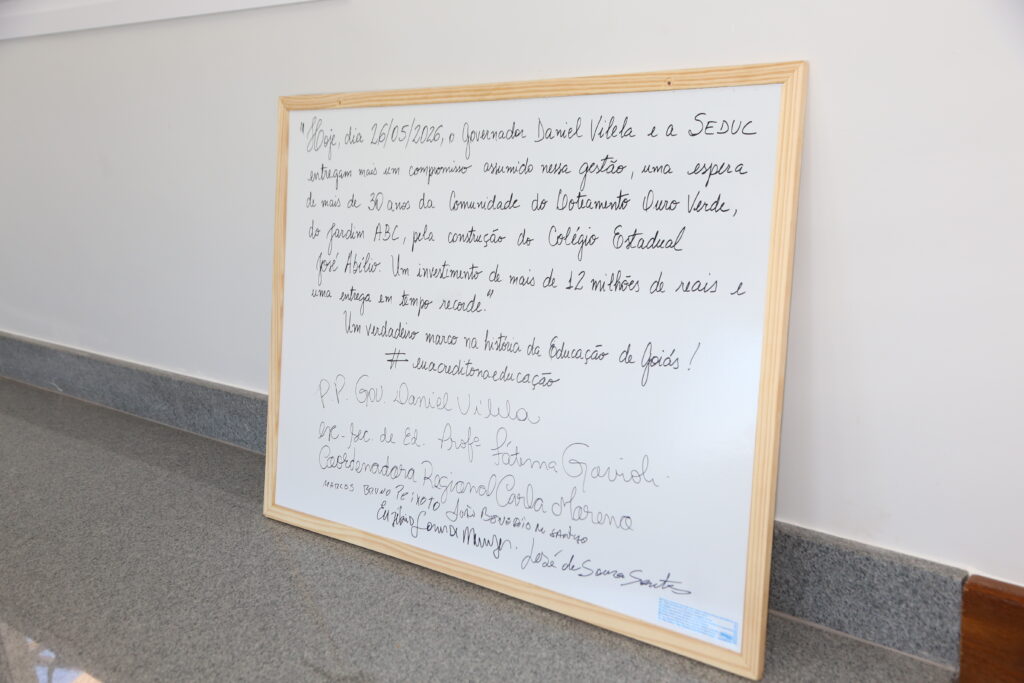 "Hoje, dia 26/05/2026, o Governador Daniel Vilela e a SEDUC
entregam mais um compromisso assumido nessa gestão, uma espera
de mais de 30 anos da Comunidade do Loteamento Ouro Verde,
do Jardim ABC, pela construção do Colégio Estadual
José Abílio. Um investimento de mais de 12 milhões de reais e
uma entrega em tempo recorde."
Um verdadeiro marco na história da Educação de Goiás!
#euacreditonaeducação
P.P. Gov. Daniel Vilela
ex-sec. de Ed. Profª Fátima Gavioli
Coordenadora Regional Carla Moreno
MARCOS BRUNO PEIXOTO
José de Souza Santos